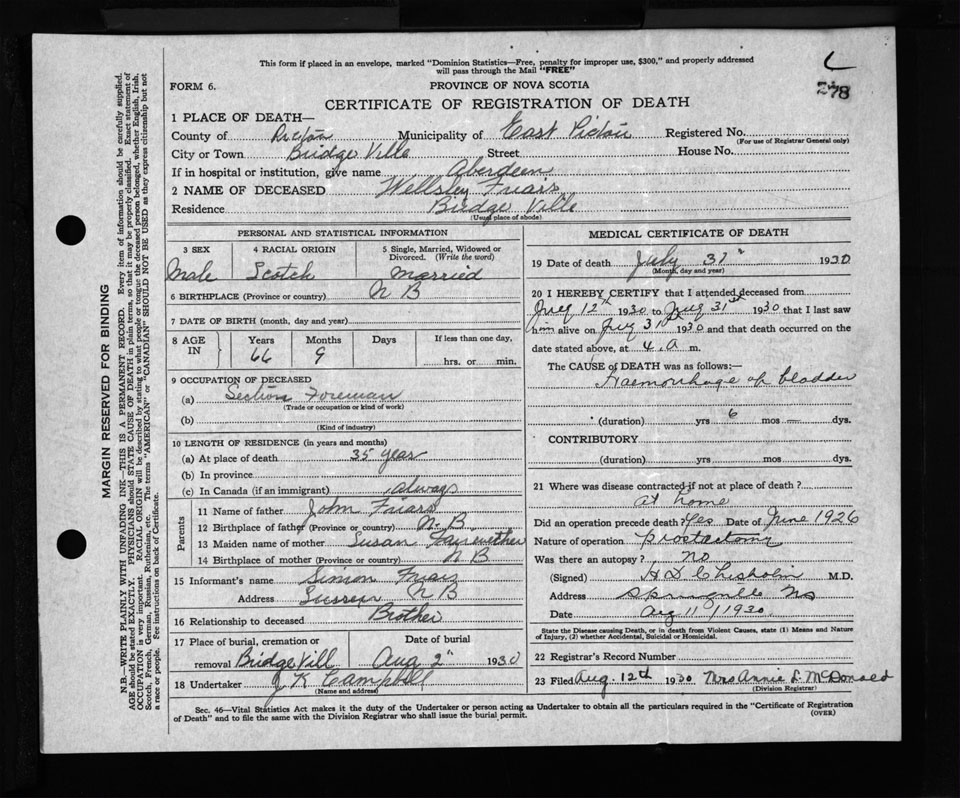 This form if placed in an envelope, marked "Dominion Statistics—Free, penalty for improper use, $300," and properly addressed
will pass through the Mail "FREE"
278
FORM 6.
PROVINCE OF NOVA SCOTIA
CERTIFICATE OF REGISTRATION OF DEATH
1 PLACE OF DEATH—
County of Pictou Municipality of East Pictou Registered No.
(For use of Registrar General only)
City or Town Bridge Ville Street House No.
If in hospital or institution, give name Aberdeen
2 NAME OF DECEASED Wellsley Friars
Residence Bridge Ville
(Usual place of abode)
PERSONAL AND STATISTICAL INFORMATION
3 SEX 4 RACIAL ORIGIN 5 Single, Married, Widowed or Divorced. (Write the word)
Male Scotch Married
6 BIRTHPLACE (Province or country) N B
7 DATE OF BIRTH (month, day and year)
8 AGE IN Years Months Days If less than one day,
66 9 hrs. or min.
9 OCCUPATION OF DECEASED
(a) Section Foreman
(Trade or occupation or kind of work)
(b)
(Kind of industry)
10 LENGTH OF RESIDENCE (in years and months)
(a) At place of death 35 year
(b) In province
(c) In Canada (if an immigrant) always
Parents
11 Name of father John Friars
12 Birthplace of father (Province or country) N. B.
13 Maiden name of mother Susan
14 Birthplace of mother (Province or country) N B
15 Informant's name Simion Friars
Address Sussex N B
16 Relationship to deceased Brother
17 Place of burial, cremation or Date of burial
removal Bridge Vill Aug 2" 1930
18 Undertaker J K Campbell
(Name and address)
MEDICAL CERTIFICATE OF DEATH
19 Date of death July 31" 1930
(Month, day and year)
20 I HEREBY CERTIFY that I attended deceased from
July 12th 1930 to July 31st 1930 that I last saw
him alive on July 31 1930 and that death occurred on the
date stated above, at 4. A m.
The CAUSE of DEATH was as follows:—
Haemorrhage of bladder
(duration) yrs 6 mos — dys.
CONTRIBUTORY
(duration) yrs. mos. dys.
21 Where was disease contracted if not at place of death?
at home
Did an operation precede death? Yes Date of June 1926
Nature of operation
Was there an autopsy? no
(Signed) H D Chisholm M.D.
Address Springville NS
Date Aug 11 1930
State the Disease causing Death, or in death from Violent Causes, state (1) Means and Nature
of Injury, (2) whether Accidental, Suicidal or Homicidal.
22 Registrar's Record Number
23 Filed Aug. 12th 1930 Mrs Annie L. McDonald
(Division Registrar)
Sec. 46—Vital Statistics Act makes it the duty of the Undertaker or person acting as Undertaker to obtain all the particulars required in the "Certificate of Registration
of Death" and to file the same with the Division Registrar who shall issue the burial permit. (OVER)
MARGIN RESERVED FOR BINDING
N.B.—WRITE PLAINLY WITH UNFADING INK—THIS IS A PERMANENT RECORD. Every item of information should be carefully supplied.
AGE should be stated EXACTLY. PHYSICIANS should STATE CAUSE OF DEATH in plain terms, so that it may be properly classified. Exact statement of
OCCUPATION is very important. RACIAL ORIGIN will be described by stating to what people or tongue the deceased person belonged, whether English, Irish,
Scotch, French, German, Russian, Ruthenian, etc. The terms "AMERICAN" or "CANADIAN" SHOULD NOT BE USED as they express citizenship but not
a race or people. See instructions on back of Certificate.